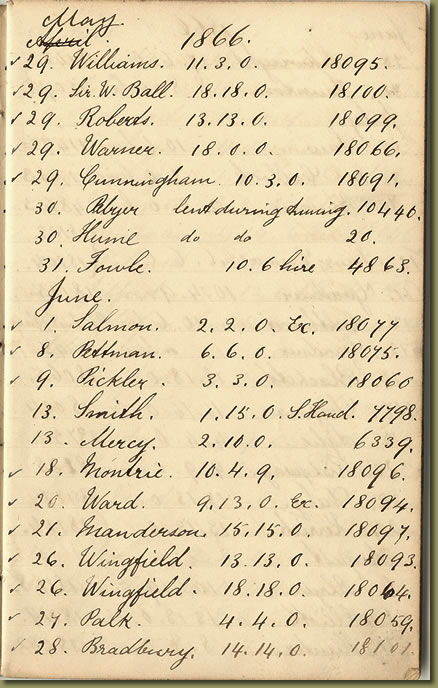 May
April. 1866.
✓ 29. Williams. 11. 3. 0. 18095.
✓ 29. Sir. W. Ball. 18. 18. 0. 18100.
✓ 29. Roberts. 13. 13. 0. 18099.
✓ 29. Warner. 18. 0. 0. 18066.
✓ 29. Cunningham. 10. 3. 0. 18091.
30. lent during tuning. 10440.
30. Hume do do 20.
✓ 31. Fowle. 10. 6 hire 4863.
June.
✓ 1. Salmon. 2. 2. 0. Ex. 18077
✓ 8. Pettman. 6. 6. 0. 18075.
✓ 9. Pickler. 3. 3. 0. 18060
13. Smith. 1. 15. 0. S. Hand. 7798.
13. Mercy. 2. 10. 0. 6339.
✓ 18. Montrie. 10. 4. 9. 18096.
✓ 20. Ward. 9. 13. 0. Ex. 18094.
✓ 21. Manderson. 15. 15. 0. 18097.
✓ 26. Wingfield. 13. 13. 0. 18093.
✓ 26. Wingfield. 18. 18. 0. 18064.
✓ 27. Palk. 4. 4. 0. 18059.
✓ 28. Bradbury. 14. 14. 0. 18101.